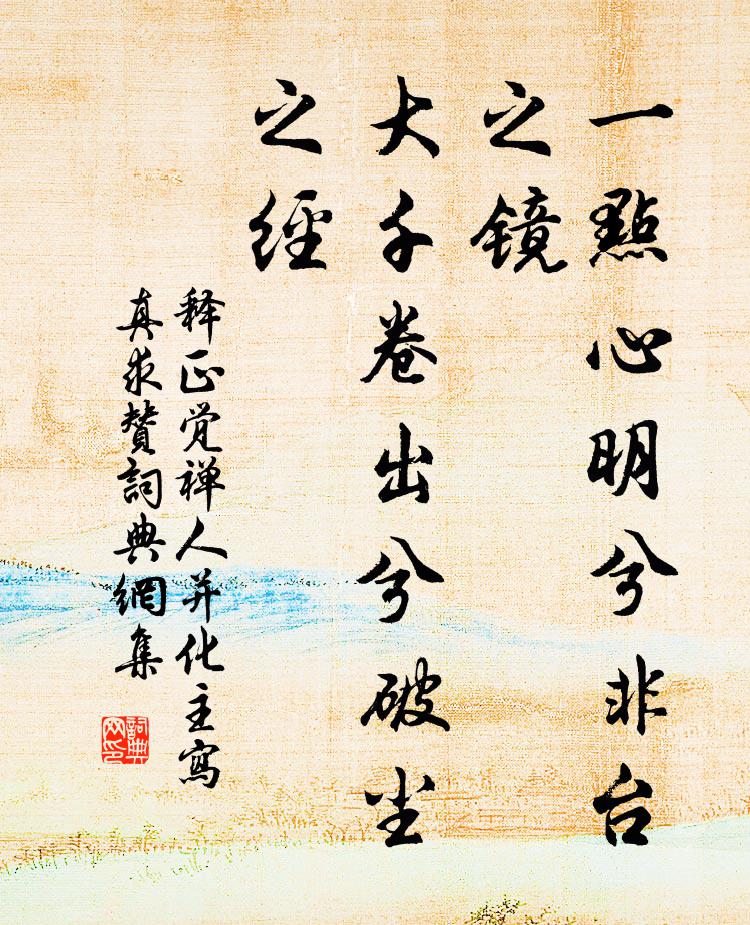 一點心明兮非台
之镜
大千卷出兮破尘
之經
释正觉禅人并化主寫
真求贊詞典網集
詞典
网印